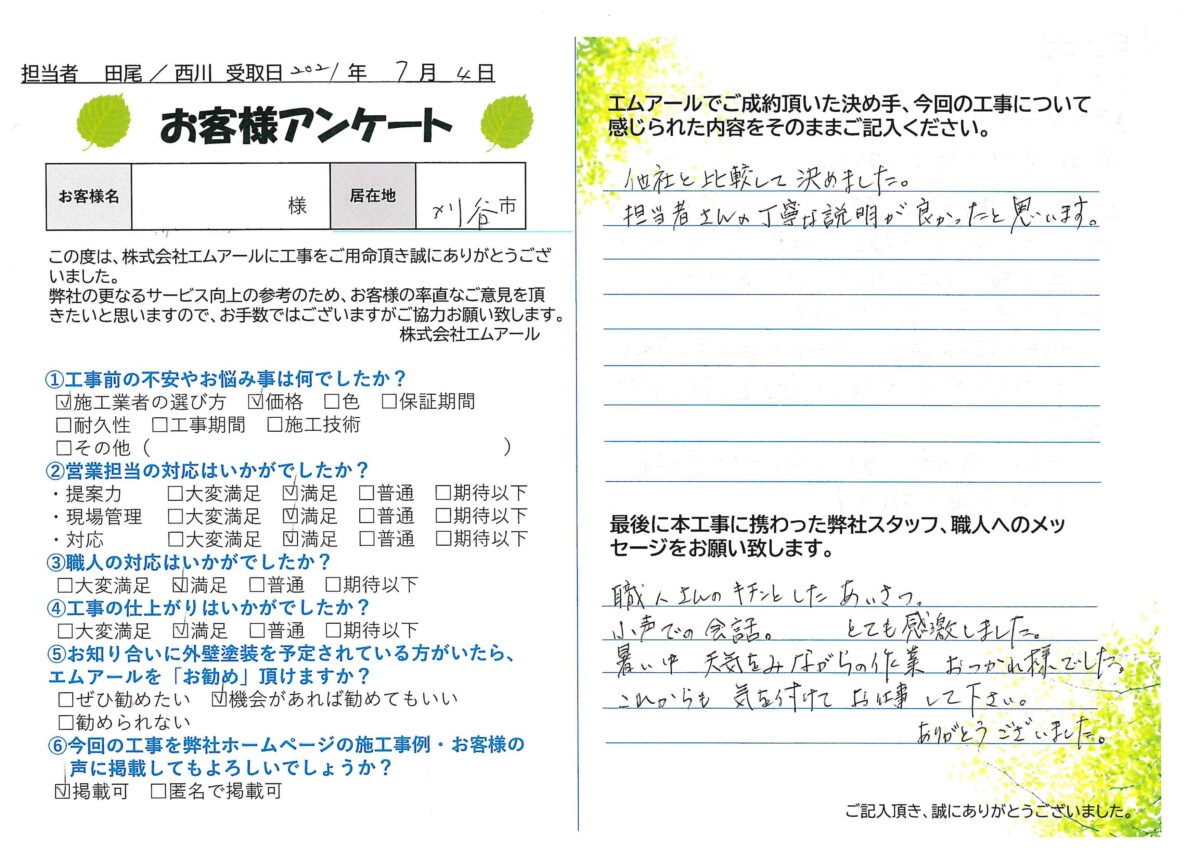 担当者 田尾／西川 受取日 2021年 7月 4日
お客様アンケート
お客様名 様 居在地 刈谷市
この度は、株式会社エムアールに工事をご用命頂き誠にありがとうござ
いました。
弊社の更なるサービス向上の参考のため、お客様の率直なご意見を頂
きたいと思いますので、お手数ではございますがご協力お願い致します。
株式会社エムアール
①工事前の不安やお悩み事は何でしたか？
☑施工業者の選び方 ☑価格 □色 □保証期間
□耐久性 □工事期間 □施工技術
□その他（ ）
②営業担当の対応はいかがでしたか？
・提案力 □大変満足 ☑満足 □普通 □期待以下
・現場管理 □大変満足 ☑満足 □普通 □期待以下
・対応 □大変満足 ☑満足 □普通 □期待以下
③職人の対応はいかがでしたか？
□大変満足 ☑満足 □普通 □期待以下
④工事の仕上がりはいかがでしたか？
□大変満足 ☑満足 □普通 □期待以下
⑤お知り合いに外壁塗装を予定されている方がいたら、
エムアールを「お勧め」頂けますか？
□ぜひ勧めたい ☑機会があれば勧めてもいい
□勧められない
⑥今回の工事を弊社ホームページの施工事例・お客様の
声に掲載してもよろしいでしょうか？
☑掲載可 □匿名で掲載可
エムアールでご成約頂いた決め手、今回の工事について
感じられた内容をそのままご記入ください。
他社と比較して決めました。
担当者さんの丁寧な説明が良かったと思います。
最後に本工事に携わった弊社スタッフ、職人へのメッ
セージをお願い致します。
職人さんのキチンとしたあいさつ。
小声での会話。 とても感激しました。
暑い中 天気をみながらの作業 おつかれ様でした。
これからも 気を付けて お仕事 して下さい。
ありがとうございました。
ご記入頂き、誠にありがとうございました。